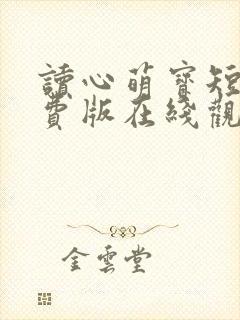 讀心萌寶短
費版在綫觀
金雲堂